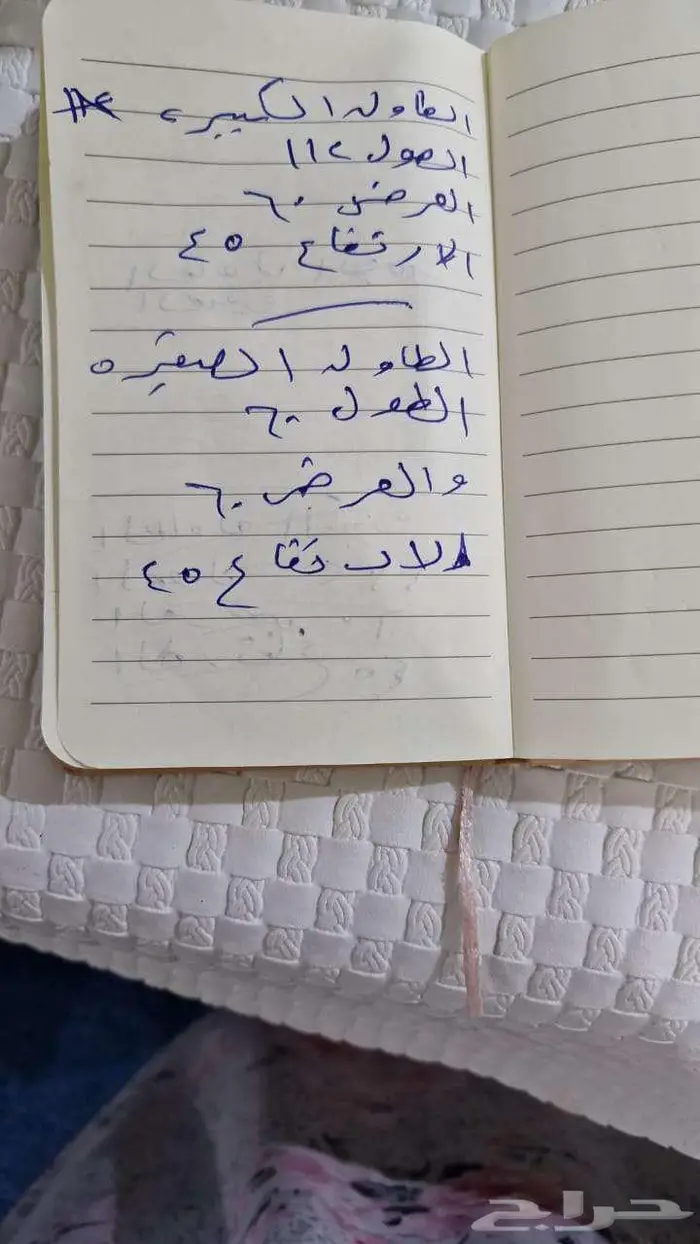 الطاوله الكبيره
الطول ١١٢
العرض ٦٠
الارتفاع ٤٥
الطاوله الصغيره
الطول ٦٠
والعرض ٦٠
الارتفاع ٤٥
حراج